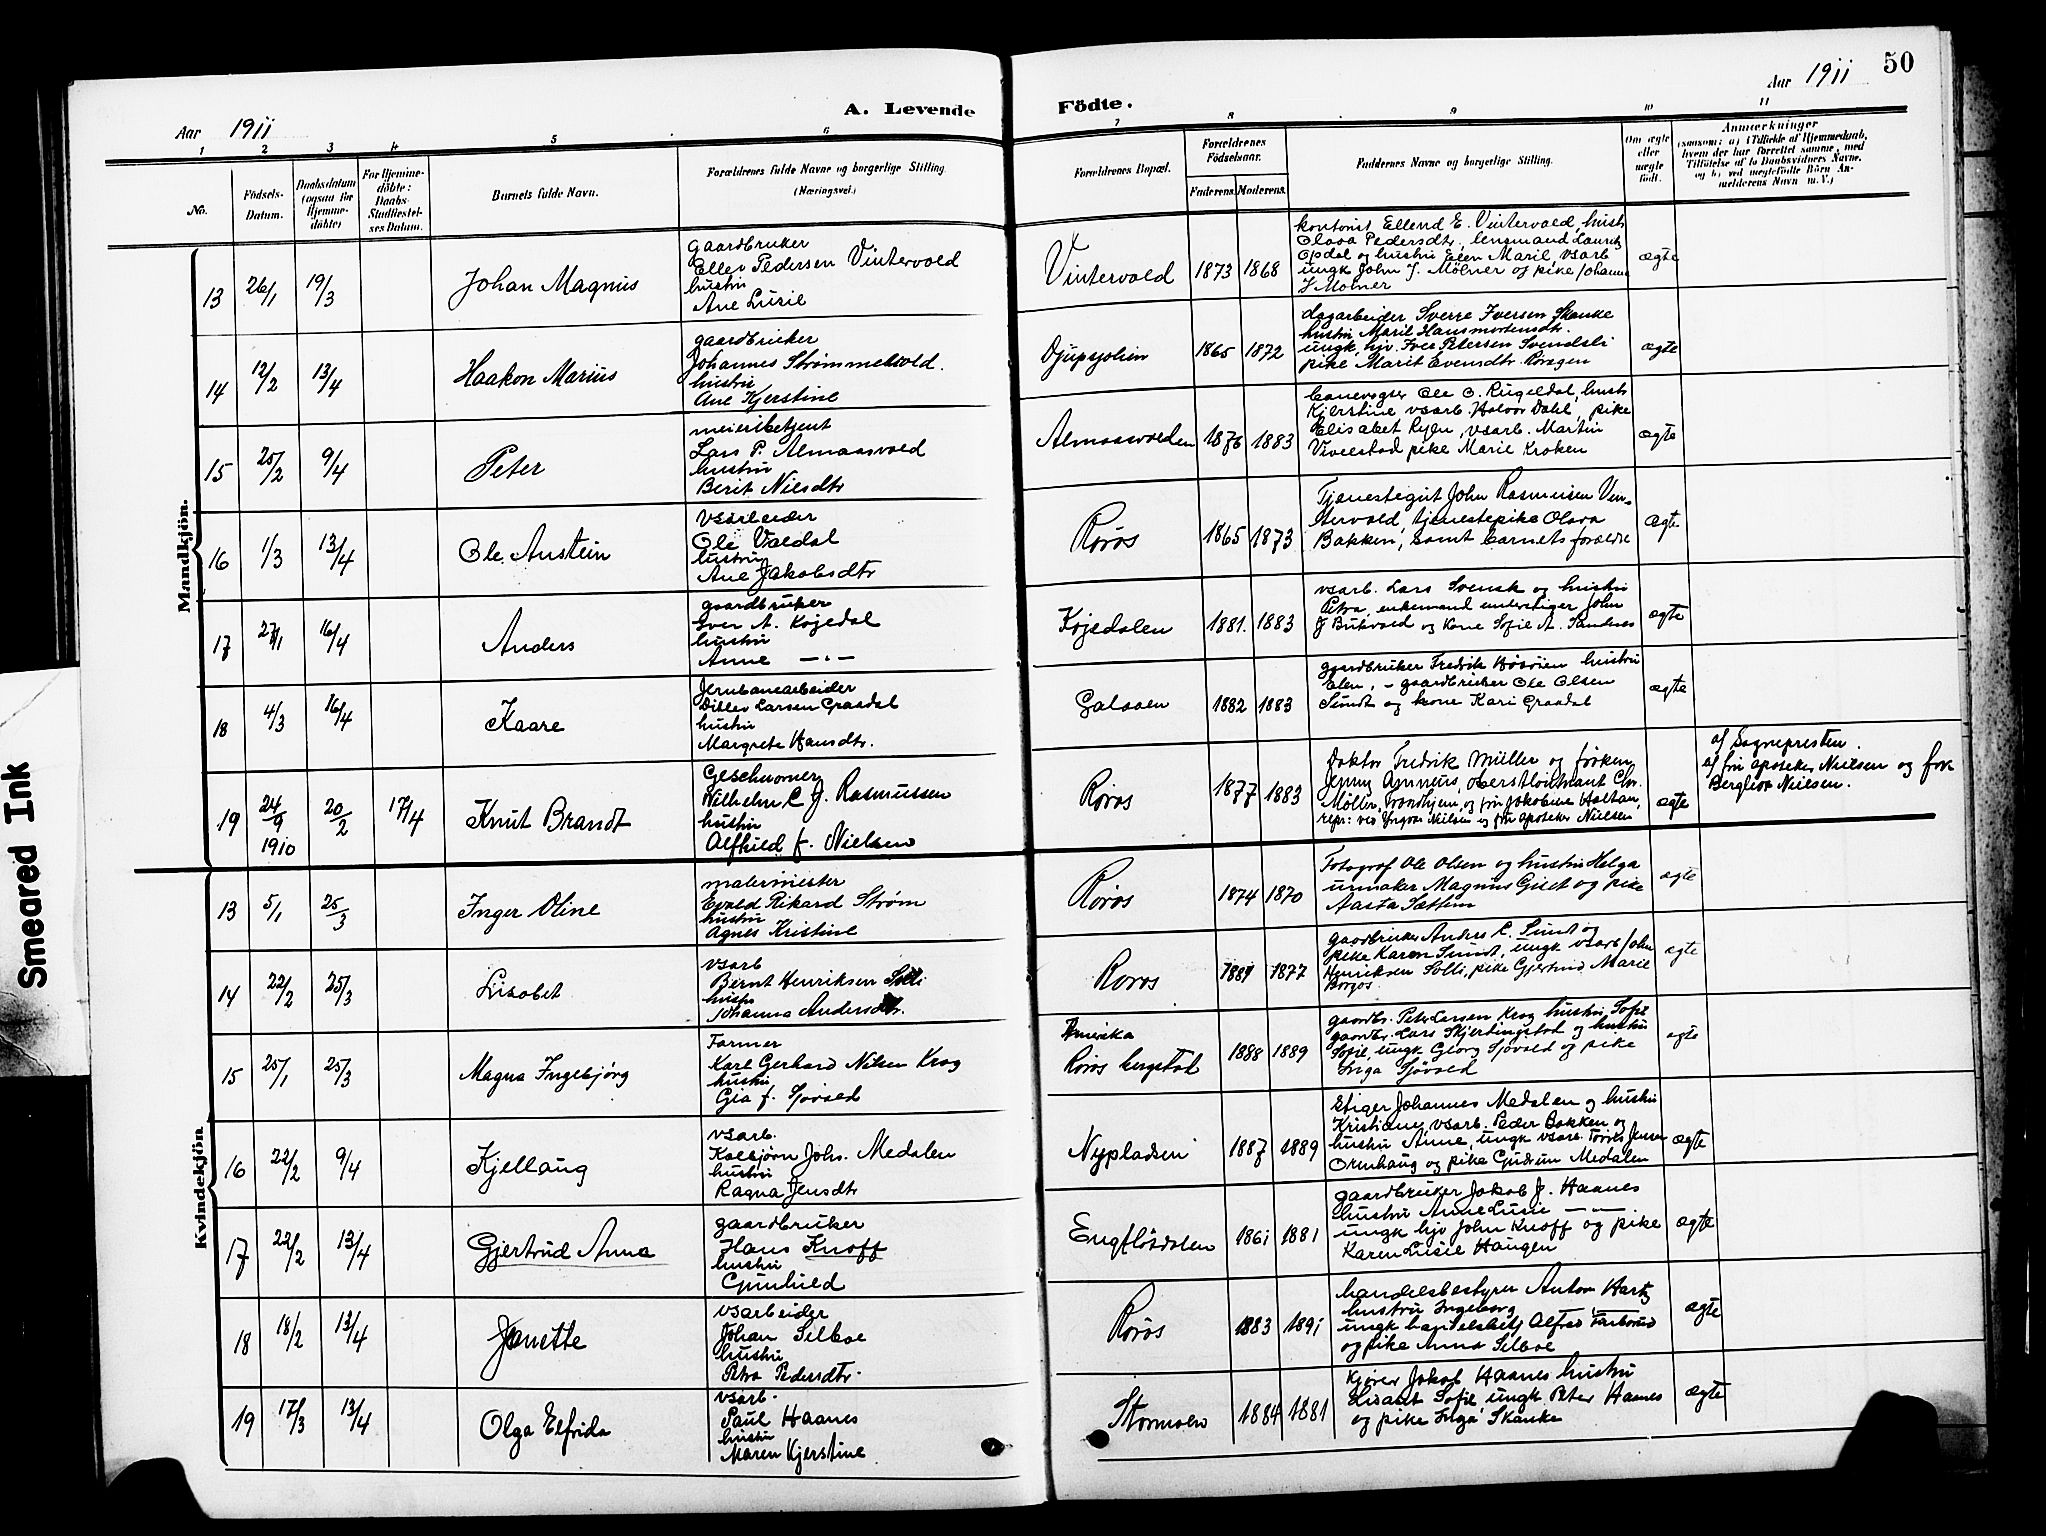 50
Aar 1911
A. Levende Födte.
Aar 1911
1 2 3 4 5 6 7 8 9 10 11
No.
Födsels-
Datum.
Daabsdatum
(ogsaa for
Hjemme-
döbte)
For Hjemme-
döbte:
Daabs-
Stadfæstel-
ses Datum.
Barnets fulde Navn.
Forældrenes fulde Navne og borgerlige Stilling
(Næringsvei.)
Forældrenes Bopæl.
Forældrenes
Födselsaar.
Faderens. Moderens.
Faddernes Navne og borgerlige Stilling.
Om ægte
eller
uægte
födt.
Anmærkninger
(saasom: a) i Tilfælde af Hjemmedaab,
hvem der har forrettet samme, med
Tilföielse af to Daabsvidners Navne,
og b) ved uægtefödte Börn An-
melderens Navn m. V.)
Mandkjön.
13 26/1 19/3 Johan Magnus
gaardbruker
Ellev Pedersen Vintervold
hustru
Ane Lusie
Vintervold 1873 1868
kontorist Ellend E. Vintervold, hustr
Olava Pedersdtr, lensmand Lauritz
Opdal og hustru Elen Maril, vsarb
ungk John J. Mølner og pike Johanna
J Mølner
ægte
14 12/2 13/4 Haakon Marius
gaardbruker
Johannes Strømmevold.
hustru
Ane Kjerstine
Djupsjolien 1865 1872
dagarbeider Sverre Iversen Skanke
hustru Maril Hansmortensdtr.
ungk, hjv. Iver Petersen Svendsli
pike Marit Evensdtr. Moragen
ægte
15 25/2 9/4 Peter
meieribetjent
Lars P. Almaasvold
hustru
Berit Nilsdtr
Almaasvolden 1876 1883
banevogter Ole O. Rugeldal, hustr
Kjerstine vsarb. Halvor Dahl, pike
Elisabet Ryen, vsarb. Martin
Viveistad pike Marie Kroken
ægte
16 1/3 13/4 Ole Anstein
vsarbeider
Ole Vældal
hustru
Ane Jakobsdtr
Røros 1865 1873
Tjenestegut John Rasmusen Vin-
tervold, tjenestepike Olava
Bakken, samt barnets forældre
ægte
17 27/1 16/4 Anders
gaardbruker
Iver A. Kojedal
hustru
Anne —"—
Kojedalen 1881. 1883
vsarb. Lars Svensk og hustru
Petra, enkemand understiger John
J Bukvold og kone Sofie A. Sandnes
ægte
18 4/3 16/4 Kaare
Jernbanearbeider
Ditlev Larsen Graadal
hustru
Margrete Hansdtr.
Galaaen 1882 1883
gaardbruker Fredrik Høsøien hustru
Elen, - gaardbruker Ole Olsen
Sundt og kone Kari Graadal
ægte
19 24/9 1910 20/2 17/4 Knut Brandt
Geschworner
Wilhelm C. J. Rasmussen
hustru
Alfhild f. Nielsen
Røros 1877 1883
Doktor Fredrik Müller og frøken
Jenny Amnéus, oberstløitnant Chr.
Møller, Trondhjem, og fru Jakobine Holtan,
repr: ved Yngvar Nielsen og fru apoteker Nielsen
ægte
af Sognepresten.
af fru apoteker Nielsen og frk
Bergliot Nielsen.
Kvindekjön
13 5/1 25/3 Inger Oline
malermester
Evald Rikard Strøm
hustru
Agnes Kristine
Røros 1874 1870
Fotograf Ole Olsen og hustru Helga
urmaker Magnus Giset og pike
Aasta Sættem
ægte
14 22/2 25/3 Lisabet
vsarb
Bernt Henriksen Solli
hustr
Johanna Andersdtr.
Roros 1881 1877
gaardbruker Anders C. Sundt og
pike Karen Sundt, ungk vsarb John
Henriksen Solli, pike Gjertrud Marie
Borgos
ægte
15 25/1 25/3 Magna Ingebjørg
Farmer
Karl Gerhard Nilsen Krog
hustru
Gea f. Sjøvold
Amerika
Røros bergstad 1888 1889
gaardbr. Peter Larsen Krog hustru Sofie
gaardbr. Lars Skjerdingstad og hustru
Sofie, ungk Georg Sjøvold og pike
Inga Sjøvold
ægte
16 22/2 9/4 Kjellaug
vsarb.
Kolbjørn Johs. Medalen
hustru
Ragna Jensdtr
Nypladsen 1887 1889
Stiger Johannes Medalen og hustru
Kristiane, vsarb. Peder Bakken og
hustru Anne, ungk vsarb. Torvils Jensen
Ormhaug og pike Gudrun Medalen
ægte
17 22/2 13/4 Gjertrud Anna
gaardbruker
Hans Knoff
hustru
Gunhild
Engflødalen 1861 1881
gaardbruker Jakob J. Haanes
hustru Anne Lusie —"—
ungk hjv John Knoff og pike
Karen Lusie Haugen
ægte
18 18/2 13/4 Janette
vsarbeider
Johan Selboe
hustru
Petra Pedersdtr.
Røros 1883 1891
handelsbestyrer Anton Hartz
hustru Ingeborg
ungk handelsbetj Alfred Tarberud
og pike Anna Selboe
ægte
19 17/3 13/4 Olga Elfrida
vsarb.
Paul Haanes
hustru
Maren Kjerstine
Stormoen 1884 1881
Kjører Jakob Haanes hustru
Lisabet Sofie ungk. Peter Haanes
og pike Inga Skanke
ægte
Smeared Ink